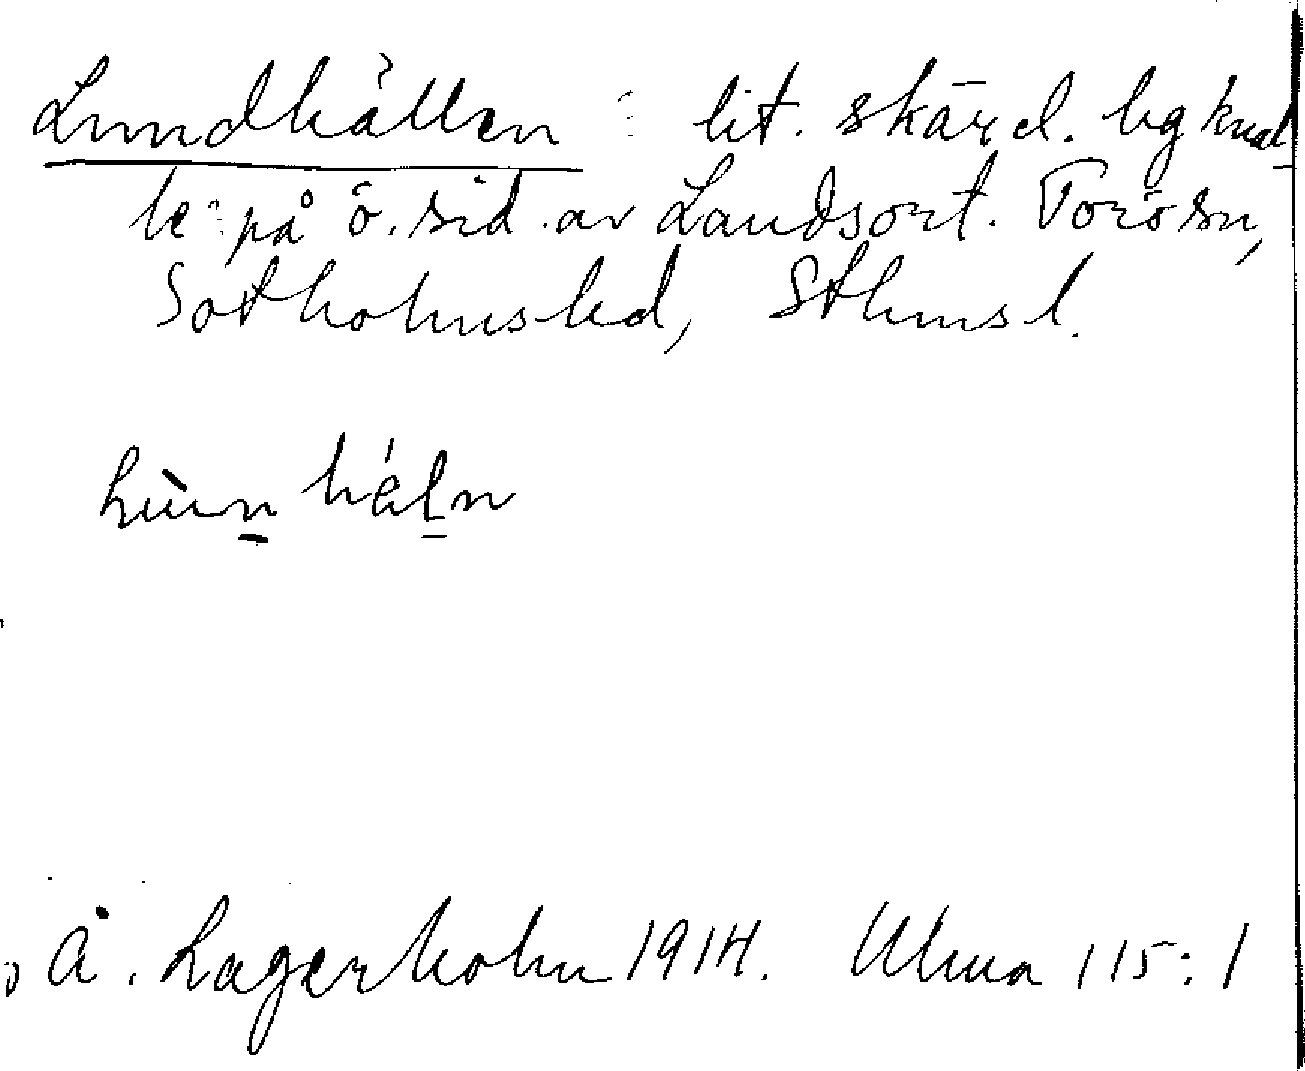 Lundhällen : lit. skär el. bg knal-
le på ö. sid. av Landsort. Torö sn,
Sotholms hd, Sthms l.
lùnn hä́ln
Å. Lagerholm 1914. Ulma 115:1